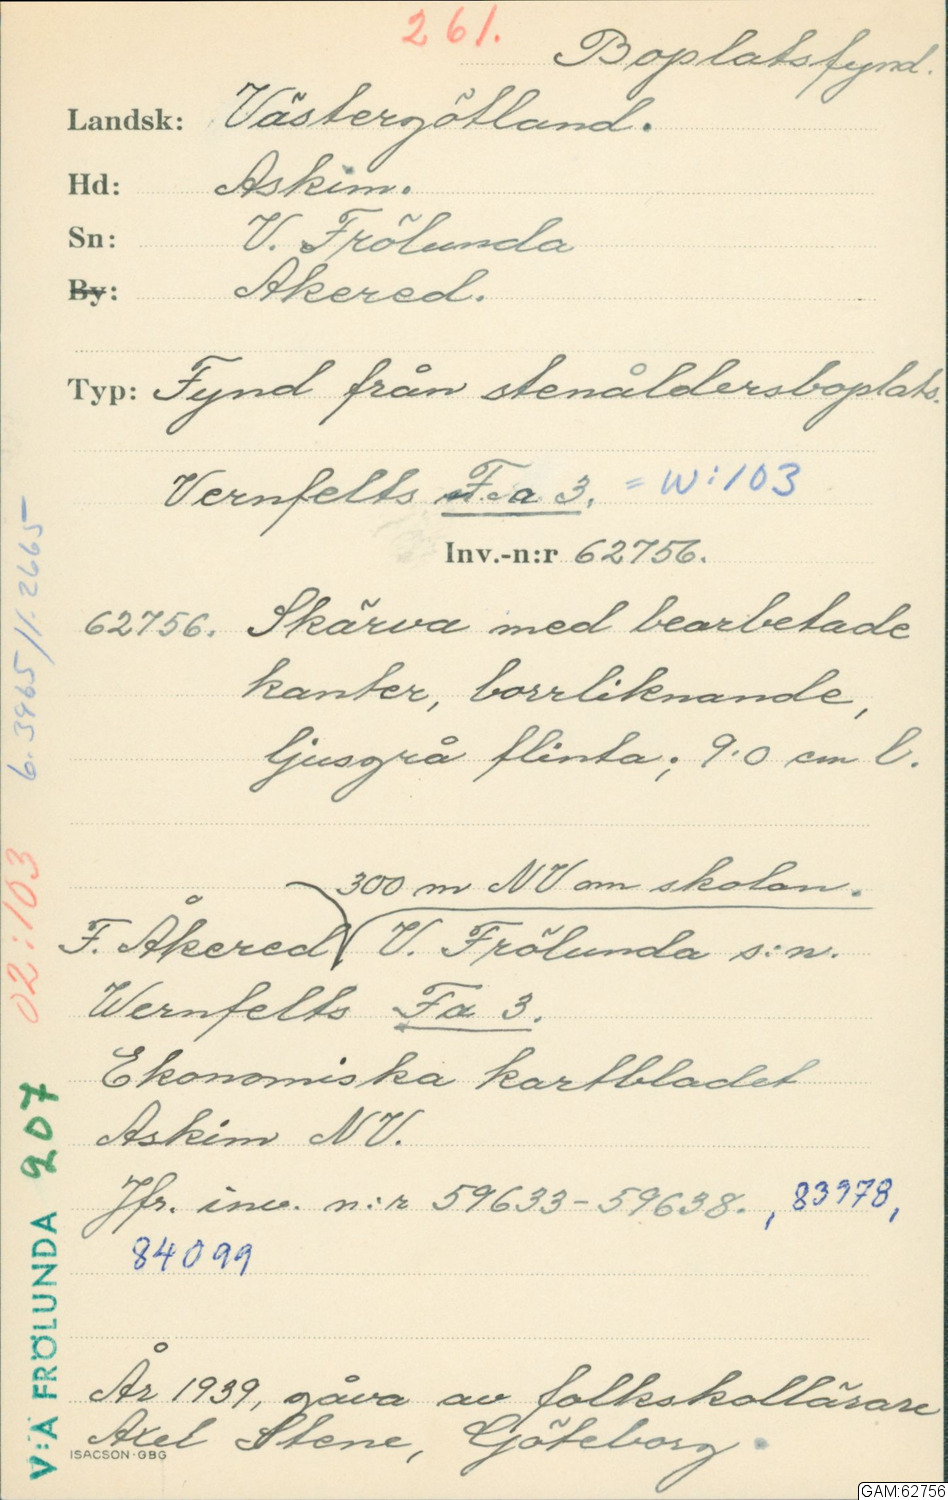 261.
Boplatsfynd.
Landsk: Västergötland.
Hd: Askim.
Sn: V. Frölunda
By: Åkered.
Typ: Fynd från stenåldersboplats.
Vernfelts Fa 3. = W:103
Inv.-n:r 62756.
62756. Skärva med bearbetade
kanter, borrliknande,
ljusgrå flinta; 9.0 cm l.
300 m NV om skolan.
F. Åkered V. Frölunda s:n.
Wernfelts Fa 3.
Ekonomiska kartbladet
Askim NV.
Jfr. inv. n:r 59633-59638. , 83978,
84099
År 1939, gåva av folkskollärare
Axel Stene, Göteborg.
ISACSON·GBG
V:Ä FRÖLUNDA 207
02:103
6.3965/1.2665
GAM:62756